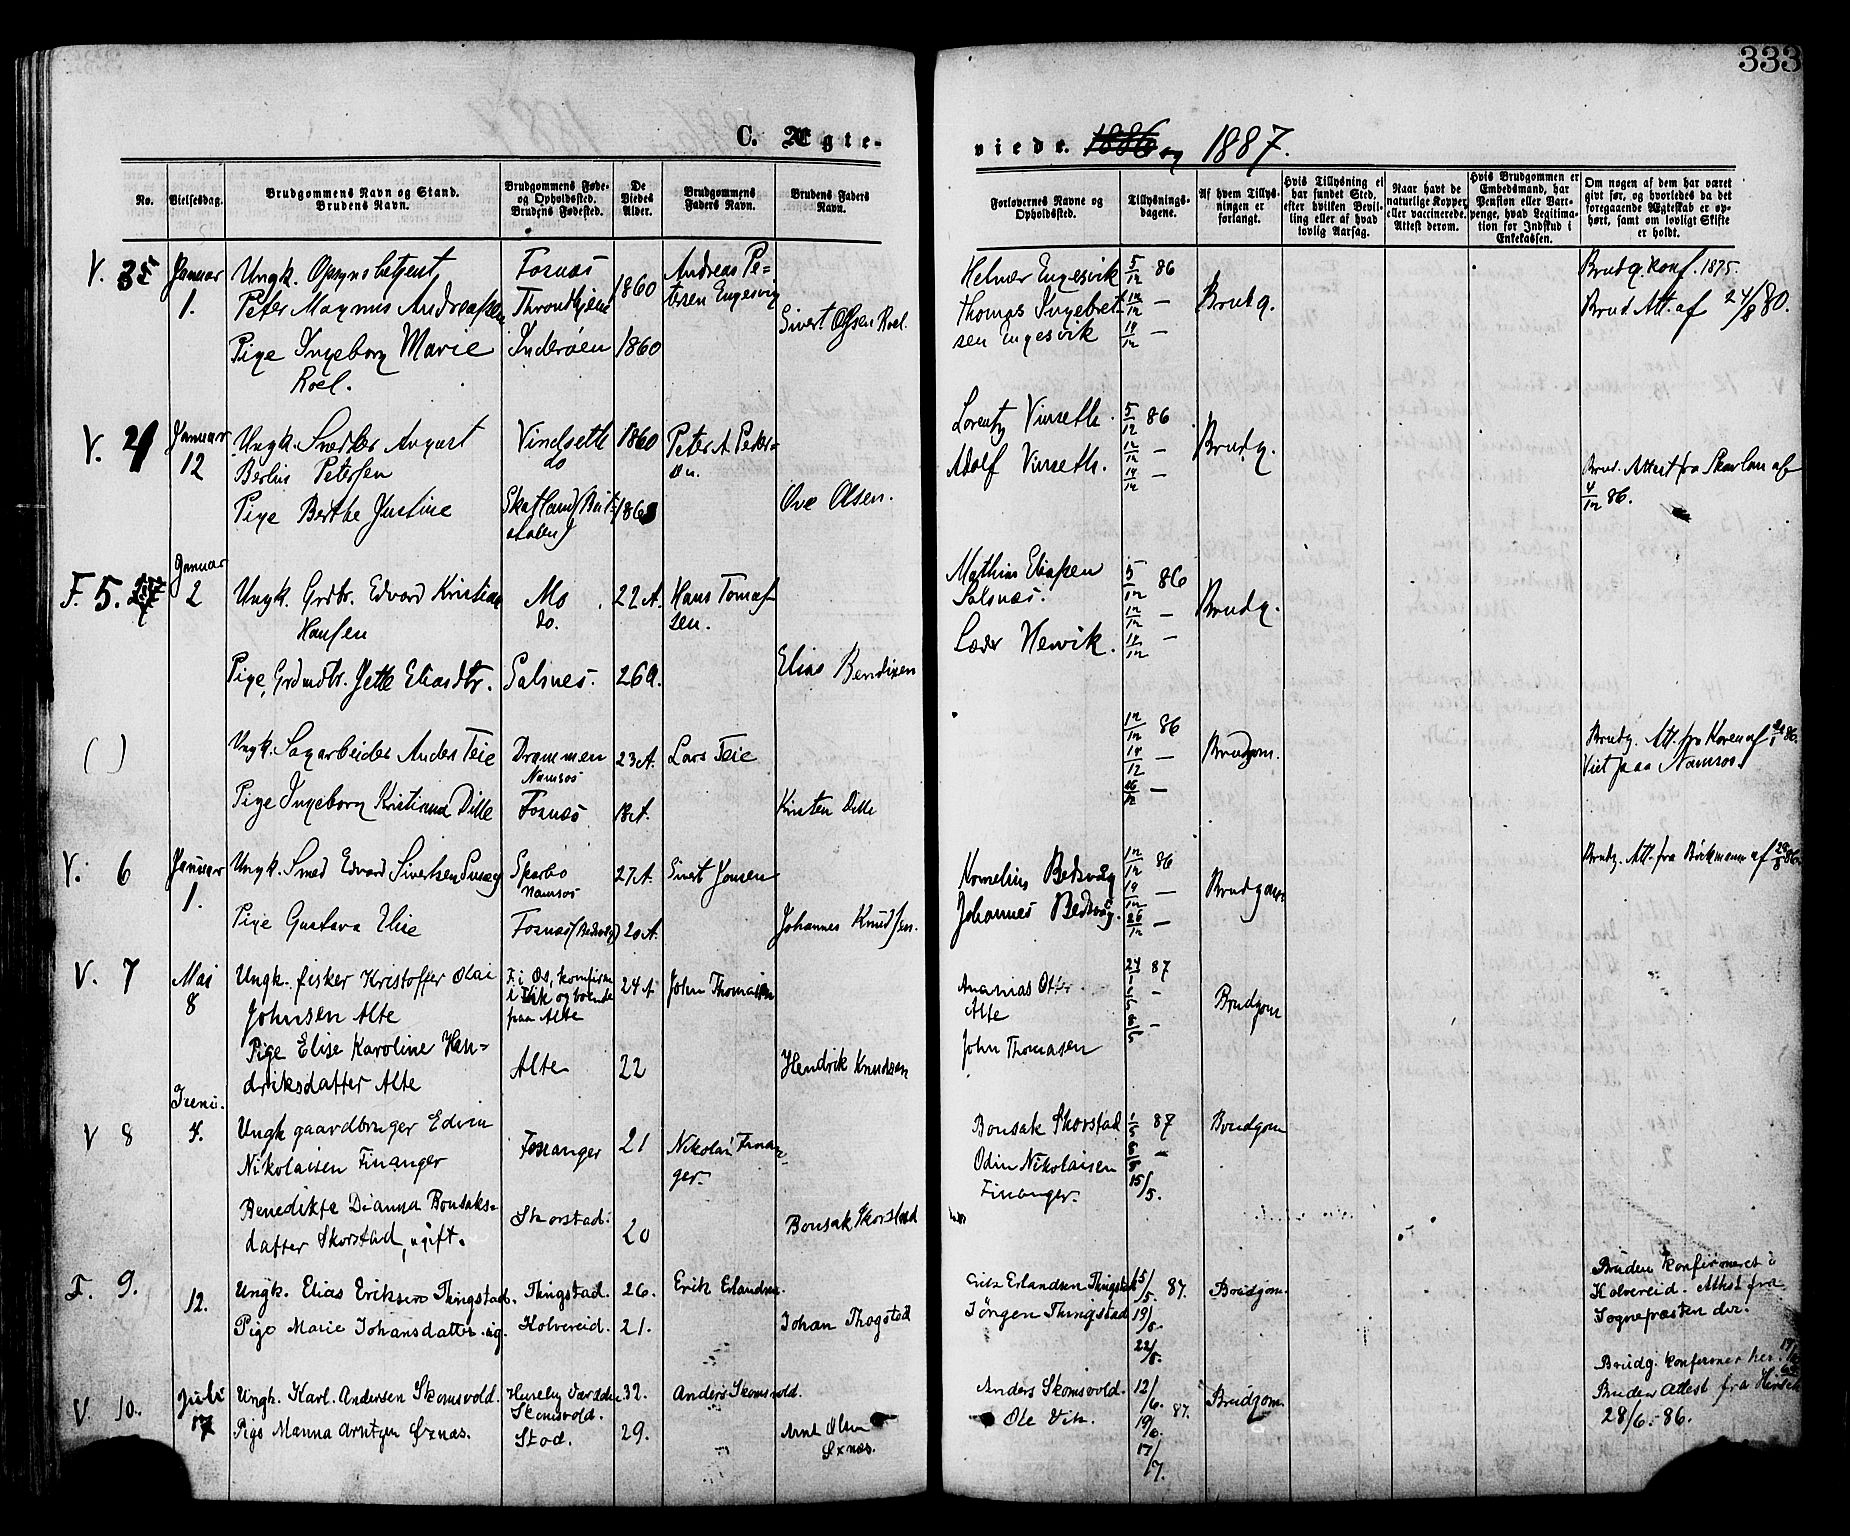 333
C. Ægte-
viede. 1886 og 1887.
No.
Vielsesdag.
Brudgommens Navn og Stand.
Brudens Navn.
Brudgommens Føde-
og Opholdssted.
Brudens Fødested.
De
Viedes
Alder.
Brudgommens
Faders Navn.
Brudens Faders
Navn.
Forlovernes Navne og
Opholdssted.
Tillysnings-
dagene.
Af hvem Tillys-
ningen er
forlangt.
Hvis Tillysning ei
har fundet Sted,
efter hvilken Bevil-
ling eller af hvad
lovlig Aarsag.
Naar havt de
naturlige Kopper,
eller vaccinerede.
Attest derom.
Hvis Brudgommen er
Embedsmand, har
Pension eller Vart-
penge, hvad Legitima-
tion for Indskud i
Enkekassen.
Om nogen af dem har været
gift før, og hvorledes da det
foregaaende Ægteskab er op-
hørt, samt om lovligt Skifte
er holdt.
V. 3
Januar
1.
Ungk.
Peter Magnus Andreassen
Pige Ingeborg Marie
Roel.
Fosnæs
Throndhjem
Inderøen
1860
1860
Andreas Pe-
tersen Engesvig
Sivert Olsen Roel.
Helmer Engesvik
Thomas Ingebret-
sen Engesvik
5/12 86
12/12 —
19/12 —
Brudg.
Brudg. konf. 1875.
Brud. Att. af 24/8 80.
V. 4
Januar
12
Ungk. Snedker August
Berlin Petersen
Pige Berthe Justine
Vindseth
do
1860
Peter A. Peder-
sen.
Ove Olsen.
Lorentz Vinseth.
Adolf Vinseth.
5/12 86
12/12 —
19/12 —
Brudg.
Brud. Attest fra Skavlan af
4/12 86.
F. 5.
Januar
2
Ungk. Grdbr. Edvard Kristian
Hansen
Pige, Grdmdtr. Jette Eliasdtr.
Mo
do.
Salsnes.
22 A.
26 A.
Hans Tomas-
sen.
Elias Bendixen
Mathias Eliassen
Salsnæs.
Henvik.
5/12 86
12/12 —
19/12 —
Brudg.
( )
Ungk. Sagarbeider Anders Teie
Pige Ingeborg Kristianna Dille
Drammen
Namsos
Fosnæs
23 A.
18 A.
Lars Teie
Kristen Dille
12/12 86
19/12 —
26/12 —
Brudgom.
Brudg. Att. fra Koren af
Viet paa Namsos.
V. 6
Januar
1.
Ungk. Smed Edvard Sivertsen
Pige Gustava Elise
Sparbo
Namsos
Fosnæs (Bedsvåg)
27 A.
20 A.
Sivert Jonsen
Johannes Knudsen.
Kornelius Bedsvåg
Johannes Bedsvåg.
12/12 86
19/12 —
26/12 —
Brudgom
Brudg. Att. fra Böckmann af
V. 7
Mai
8
Ungk. fisker Kristoffer Olai
Johnsen Alte
Pige Elise Karoline Hen-
driksdatter Alte
F. i Os, konfirm
i Vik og boende
paa Alte
Alte
24 A
22
John Thomassen
Hendrik Knudsen
Ananias Otter-
Alte
John Thomasen
87
Brudgom
V 8
Juni.
4.
Ungk gaardbruger Edvin
Nikolaisen Finanger
Benedikte Dianna Bonsaks-
datter Skorstad, ugift.
Skorstad.
21
20
Nikolai Finan-
ger.
Bonsak Skorstad
Bonsak Skorstad
Odin Nikolaisen
Finanger.
1/5 87
8/5 —
15/5.
Brudgom
F. 9.
12.
Ungk. Elias Eriksen Thingstad.
Pige Marie Johansdatter ug.
Thingstad.
Kolvereid.
26.
21.
Erik Erlandsen.
Johan Thogstad
Erik Erlandsen Thingstad
Jørgen Thingstad
15/5 87.
19/5.
22/5.
Brudgom.
Bruden konfirmeret i
Kolvereid. Attest fra
Sognepræsten der.
V. 10.
Juli
17
Ungk. Karl. Andersen Skomsvold.
Pige Manna Arntzen Øxnæs.
Skomsvold.
Stod.
32.
29.
Anders Skomsvold.
Arnt Olsen
Øxnæs.
Anders Skomsvold.
Ole Vik.
12/6. 87.
19/6.
17/7.
Brudgom.
Brudg. konfirmer her.
Bruden Attest fra
28/6 - 86.